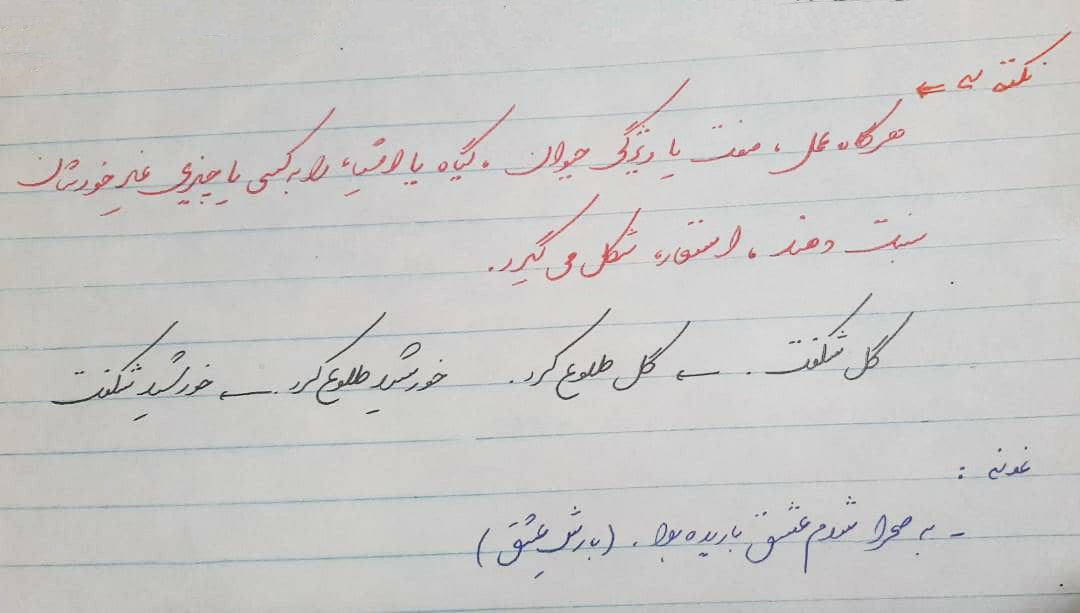 نکته ی ⇐
هرگاه عمل ، صفت یا ویژگی حیوان ، گیاه یا اشیاء را به کسی یا چیزی غیرِ خودشان
نسبت دهند ، استعاره شکل می گیرد .
گل شکفت . ← گل طلوع کرد . خورشید طلوع کرد . ← خورشید شکفت
نمونه :
- به صحرا شدم عشق باریده بود . (بارشِ عشق)